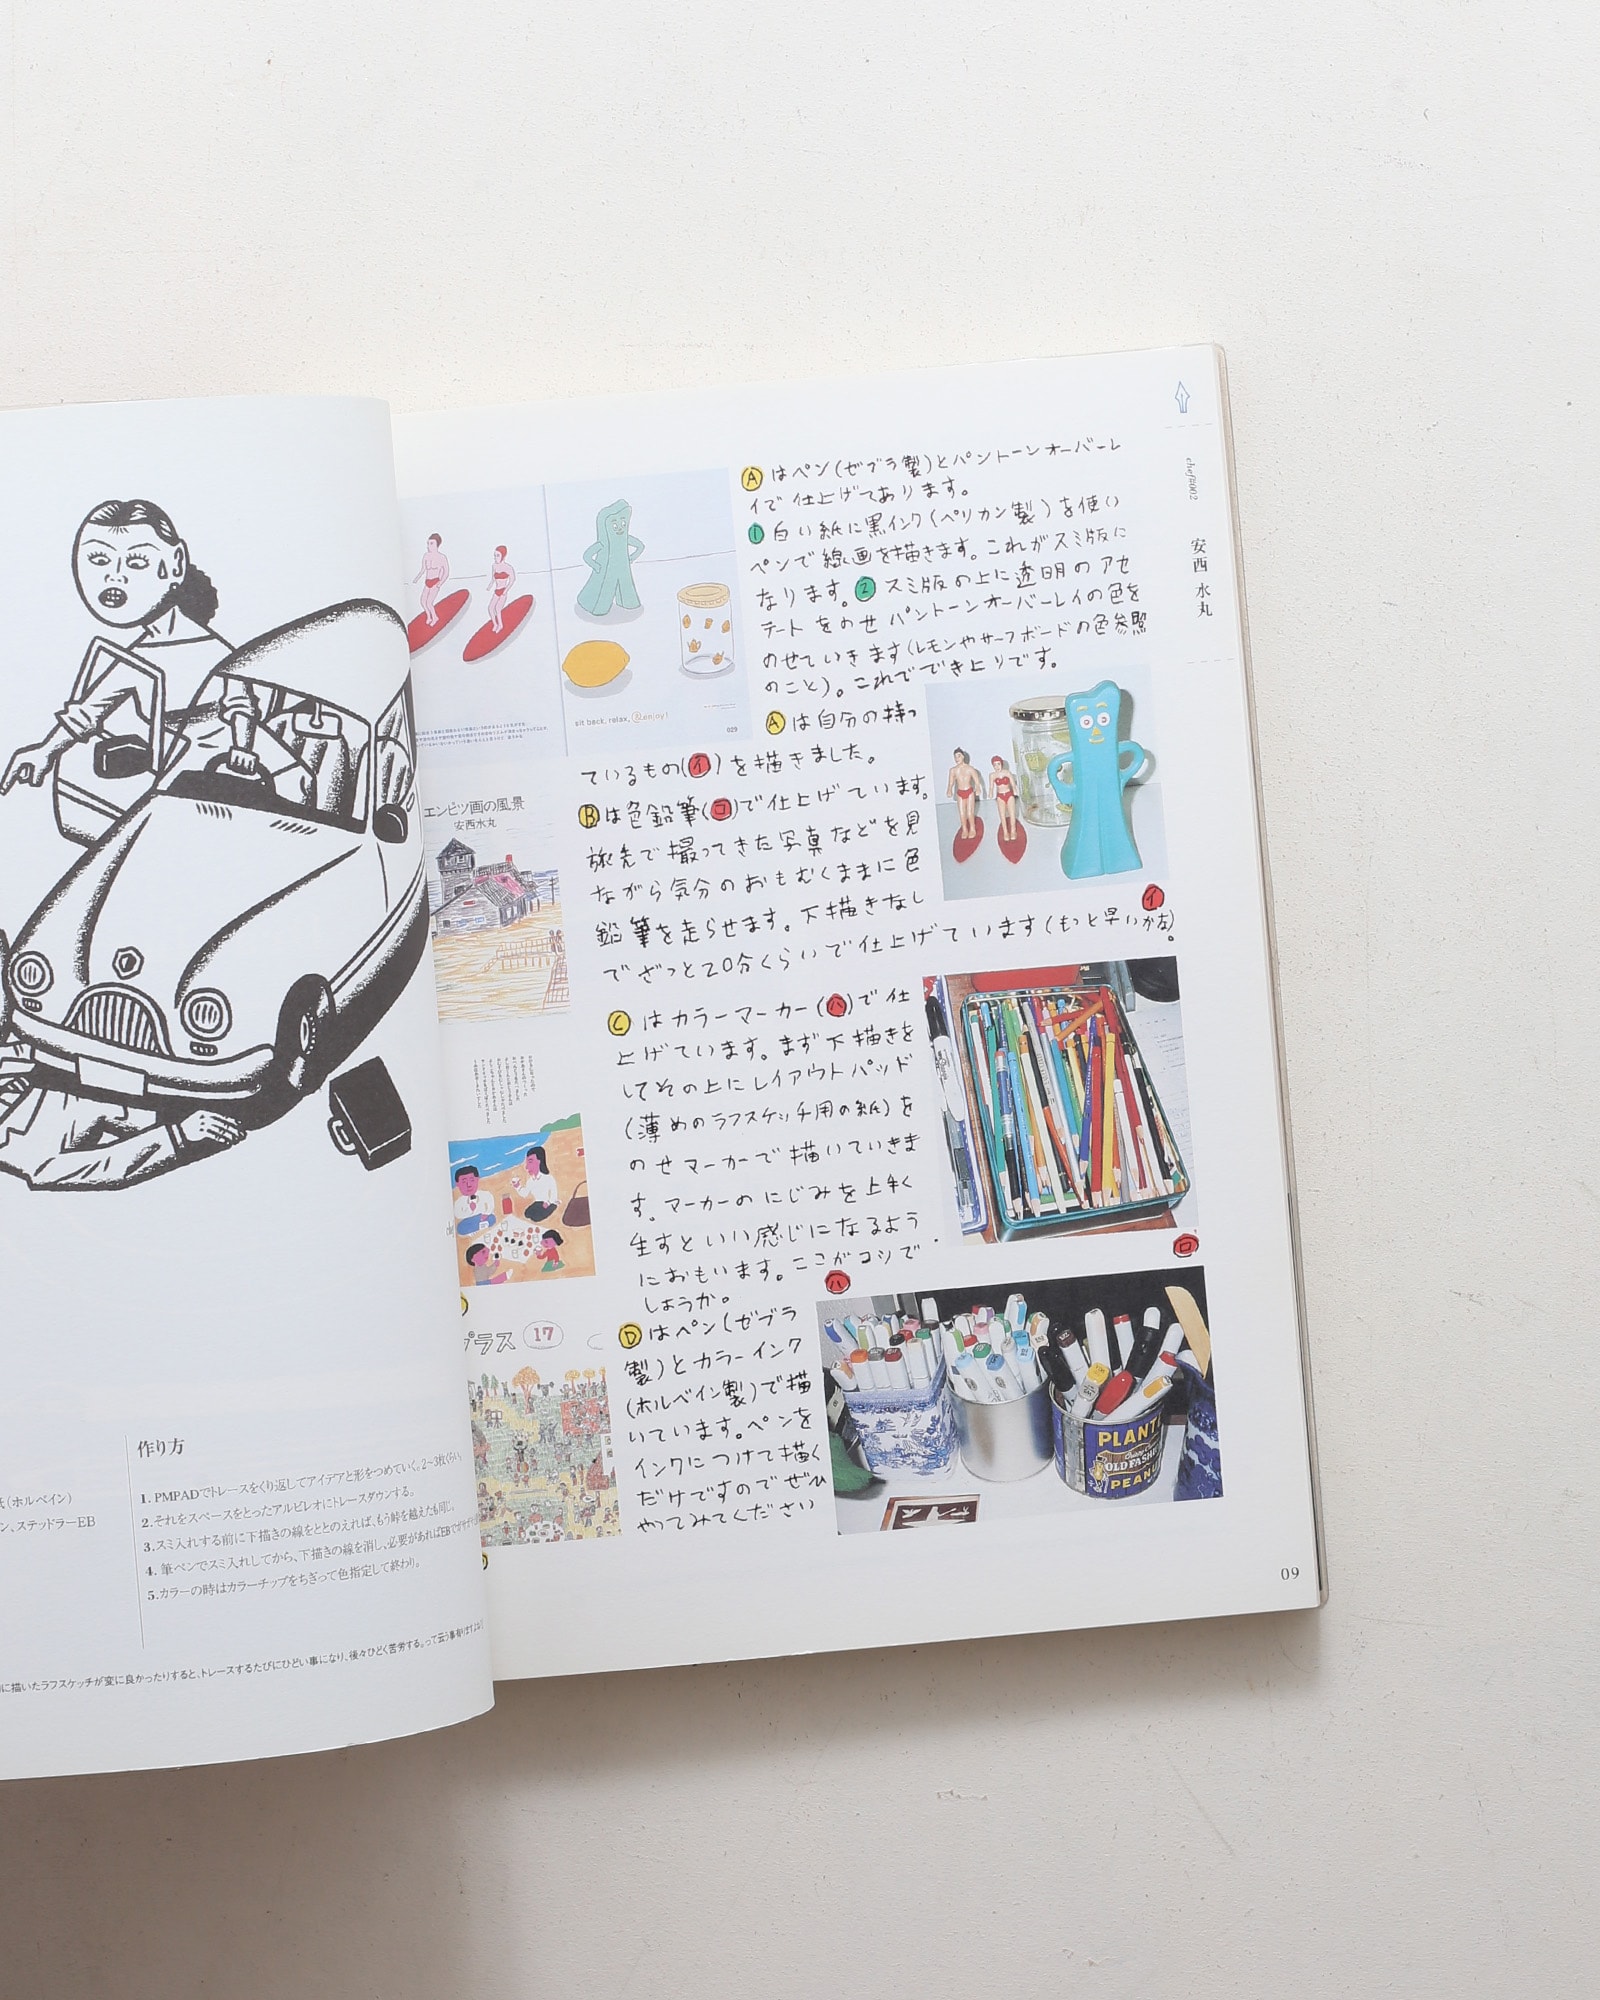 作り方
紙(ホルベイン)
ン、ステッドラーEB
1. PMPADでトレースをくり返してアイデアと形をつめていく。2〜3枚くらい。
2.それをスペースをとったアルビレオにトレースダウンする。
3.スミ入れする前に下描きの線をととのえれば、もう峠を越えたも同じ。
4. 筆ペンでスミ入れしてから、下描きの線を消し、必要があればEBで
5.カラーの時はカラーチップをちぎって色指定して終わり。
に描いたラフスケッチが変に良かったりすると、トレースするたびにひどい事になり、後々ひどく苦労する。って云う事有りますよね
chef#002
安西水丸
Ⓐはペン(ゼブラ製)とパントーンオーバーレ
イで仕上げてあります。
①白い紙に黒インク(ペリカン製)を使い
ペンで線画を描きます。これがスミ版に
なります。②スミ版の上に透明のアセ
テートをのせパントーンオーバーレイの色を
のせていきます(レモンやサーフボードの色参照
のこと)。これででき上りです。
sit back, relax, &enjoy!
029
Ⓐは自分の持っ
ているもの(イ)を描きました。
Ⓑは色鉛筆(ロ)で仕上げています。
旅先で撮ってきた写真などを見
ながら気分のおもむくままに色
鉛筆を走らせます。下描きなし
でざっと20分くらいで仕上げています(もっと早いかな)。
イ
エンピツ画の風景
安西水丸
Ⓒはカラーマーカー(ハ)で仕
上げています。まず下描きを
してその上にレイアウトパッド
(薄めのラフスケッチ用の紙)を
のせマーカーで描いていきま
す。マーカーのにじみを上手く
生すといい感じになるよう
におもいます。ここがコツで
しょうか。
ロ
ハ
プラス 17
Ⓓはペン(ゼブラ
製)とカラーインク
(ホルベイン製)で描
いています。ペンを
インクにつけて描く
だけですのでぜひ
やってみてください
PLANT
OLD FASHI
PEANU
09